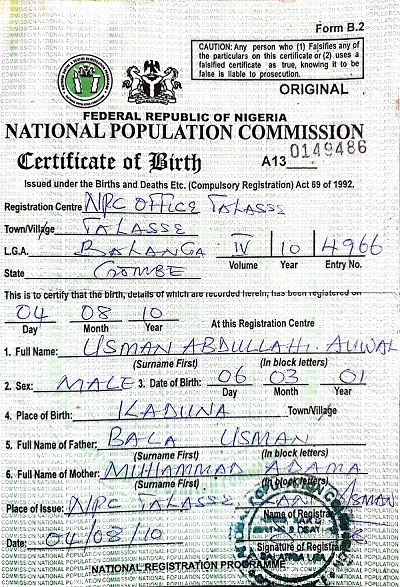 Form B.2
CAUTION: Any person who (1) Falsifies any of
the particulars on this certificate or (2) uses a
falsified certificate as true, knowing it to be
false is liable to prosecution.
ORIGINAL
FEDERAL REPUBLIC OF NIGERIA
NATIONAL POPULATION COMMISSION
Certificate of Birth A13 0149486
Issued under the Births and Deaths Etc. (Compulsory Registration) Act 69 of 1992.
Registration Centre NPC OFFICE TALASSE
Town/Village TALASSE
L.G.A. BALANGA IV 10 4966
Volume Year Entry No.
State GOMBE
This is to certify that the birth, details of which are recorded herein, has been registered on
04 08 10
Day Month Year At this Registration Centre
1. Full Name: USMAN ABDULLAHI AUWAL
(Surname First) (In block letters)
2. Sex: MALE 3. Date of Birth: 06 03 01
Day Month Year
4. Place of Birth: KADUNA Town/Village
5. Full Name of Father: BALA USMAN
(Surname First) (In block letters)
6. Full Name of Mother: MUHAMMAD ADAMA
(Surname First) (In block letters)
Place of Issue: NPC TALASSE USMAN
Name of Registrar
Date: 04/08/10
Signature of Registrar
NATIONAL REGISTRATION PROGRAMME